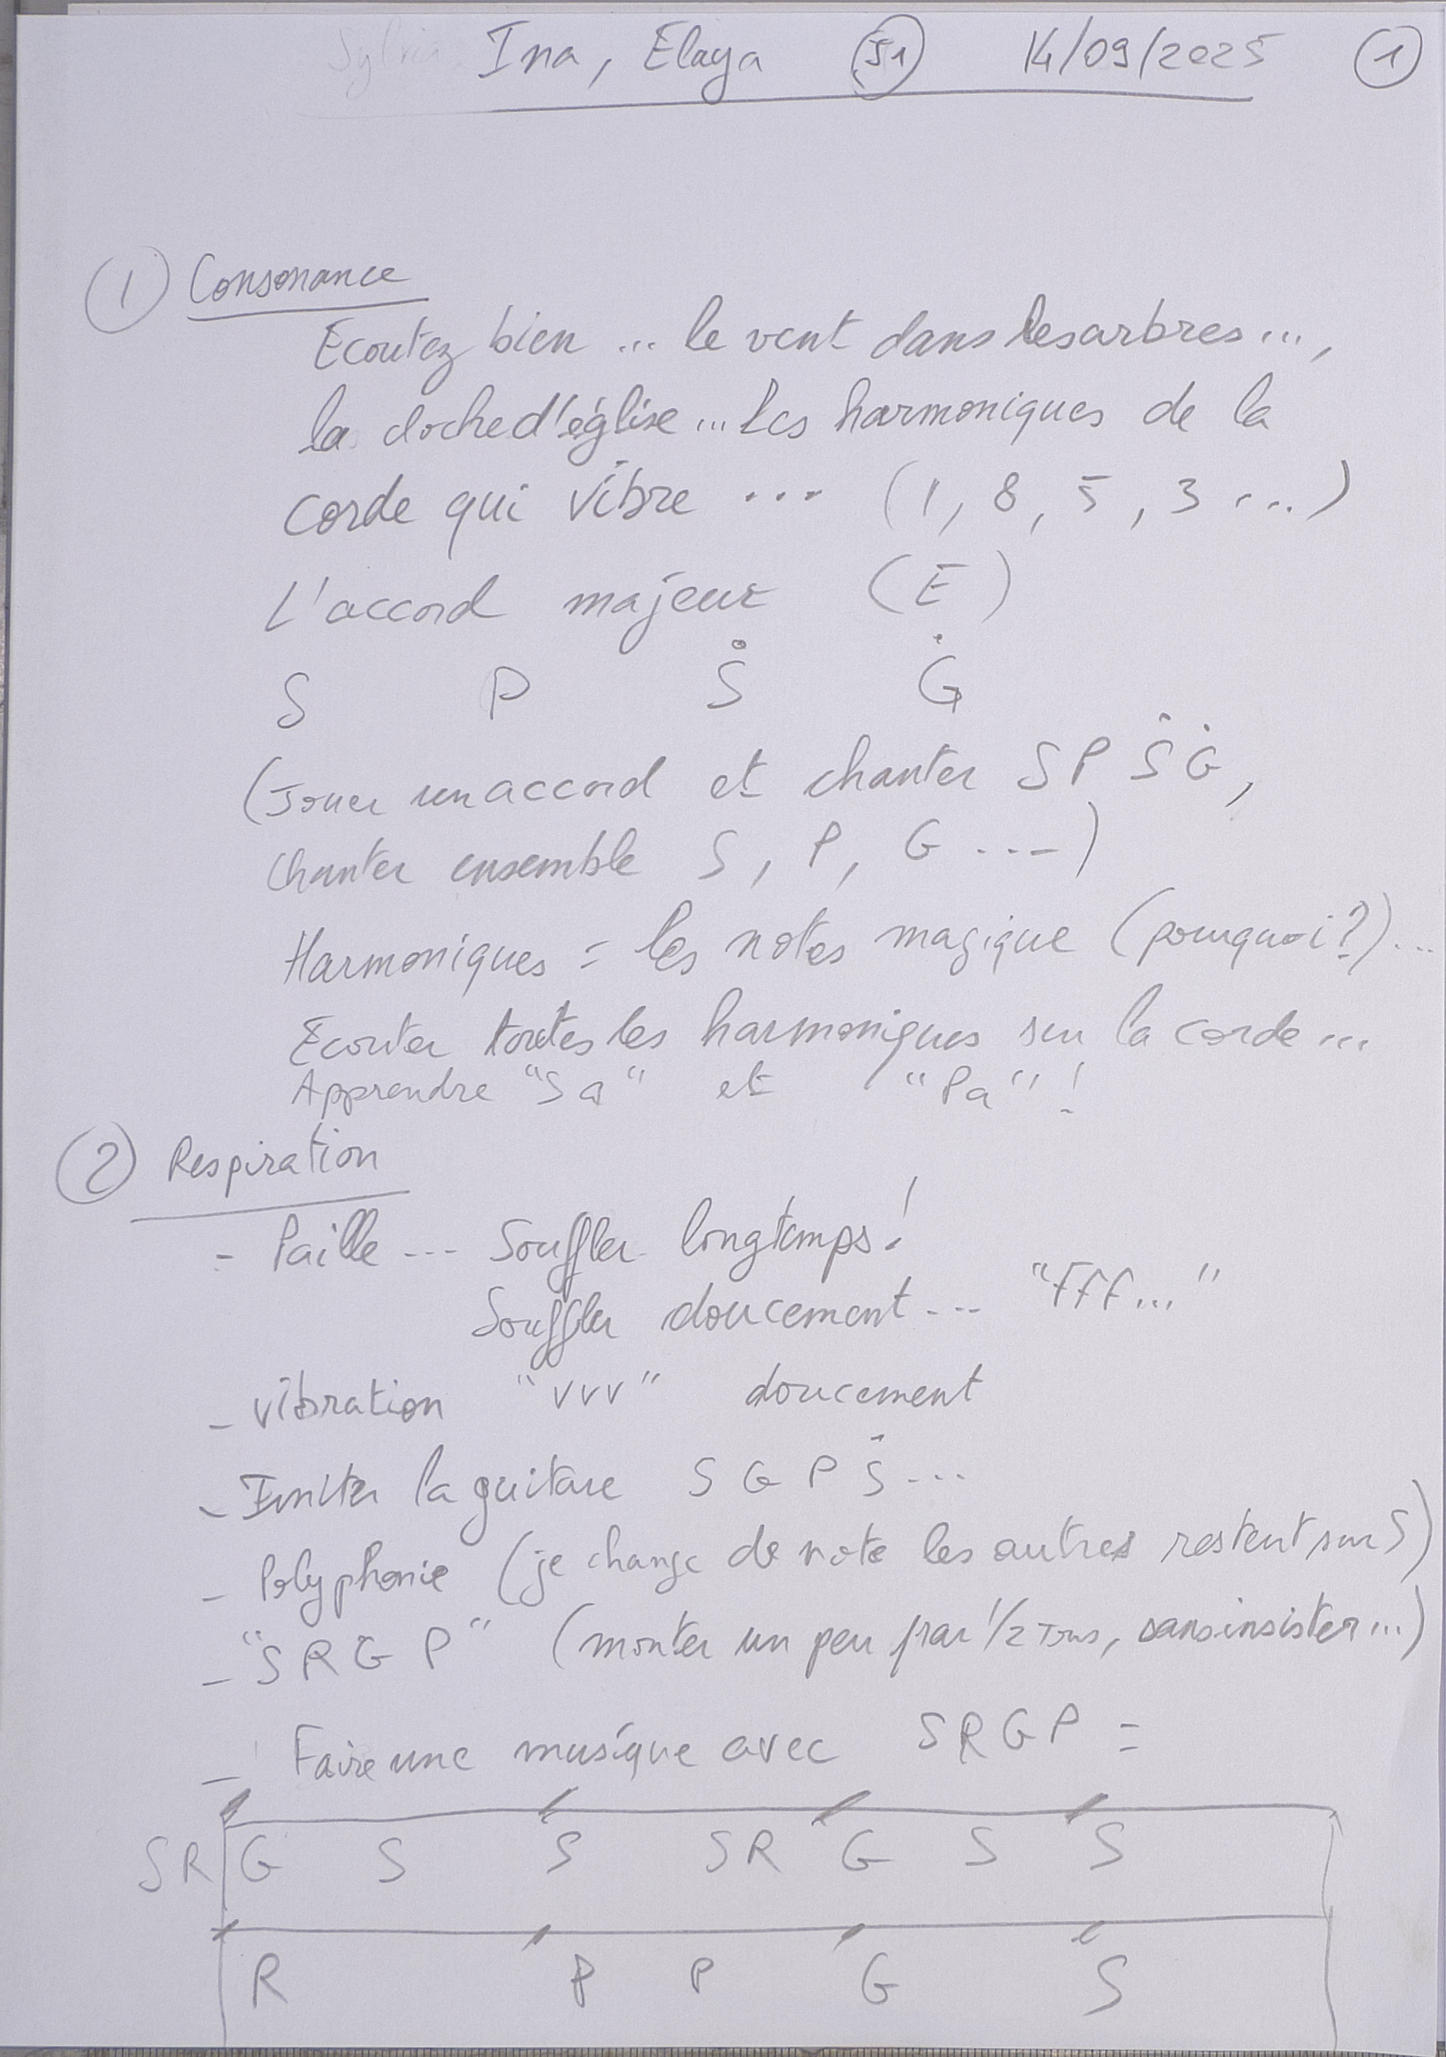 Ina, Elaya 14/09/2025 1
1 Consonance
Ecoutez bien ... le vent dans les arbres ...,
la cloche d'église ... Les harmoniques de la
corde qui vibre ... (1, 8, 5, 3 ...)
L'accord majeur (E)
S P Ṡ Ġ
(Jouer un accord et chanter S P Ṡ Ġ,
Chanter ensemble S, P, G ...)
Harmoniques = les notes magique (pourquoi?)...
Ecouter toutes les harmoniques sur la corde ...
Apprendre "Sa" et "Pa"!
2 Respiration
- Paille ... Souffler longtemps!
Souffler doucement ... "Fff..."
- vibration "vvv" doucement
- Imiter la guitare S G P Ṡ ...
- Polyphonie (je change de note les autres restent sur S)
- "S R G P" (monter un peu par 1/2 Tons, sans insister ...)
- Faire une musique avec S R G P =
SR G S S SR G S S
R P P G S